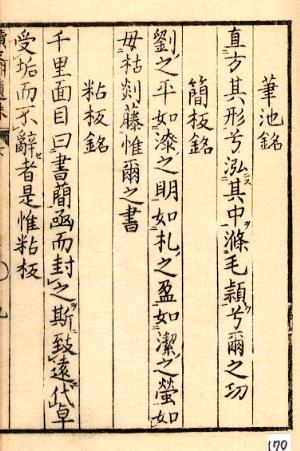 筆池銘
直方其形兮泓其中滌毛穎兮爾之功
簡板銘
劉之平如漆之明如札之盈如潔之瑩如
毋枯剡藤惟爾之書
粘板銘
千里面目曰書簡函而封之斯致遠代卓
受垢而不辭者是惟粘板
170